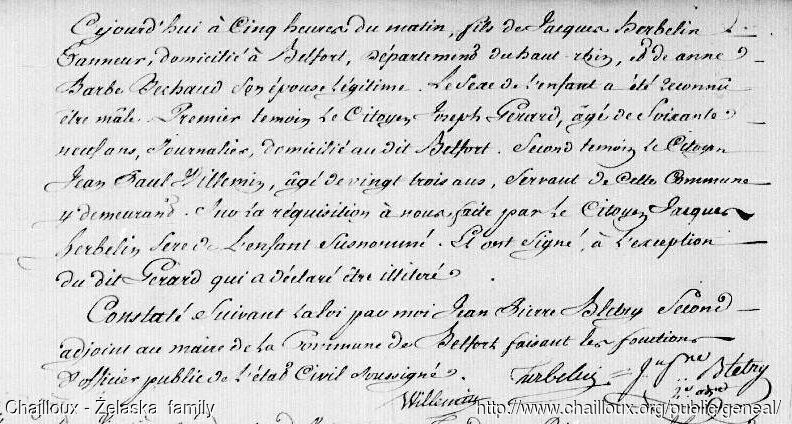 Cejourd'hui à Cinq heures du matin, fils de Jacques herbelin
Tanneur, domicilié à Belfort, Département du haut-rhin, et de anne
Barbe Bechaud Son épouse légitime. Le Sexe de L'enfant a été reconnu
être mâle. Premier temoin Le Citoyen Joseph Gerard, âgé de Soixante
neuf ans, Journalier, domicilié au dit Belfort. Second temoin Le Citoyen
Jean Paul Willemin, âgé de vingt trois ans, Servant de Cette Commune
y demeurand. Sur La réquisition à nous faite par Le Citoyen Jacques
herbelin Pere de L'enfant Susnommé. Et ont Signé, à L'exception
du dit Gerard qui a déclaré être illiteré
Constaté Suivant La Loi par moi Jean Pierre Bletry Second
adjoint au maire de La Commune de Belfort faisant Les fonctions
d'officier public de L'état Civil Soussigné.
Willemin herbelin Bletry
Chailloux - Żelaska family http://www.chailloux.org/public/geneal/